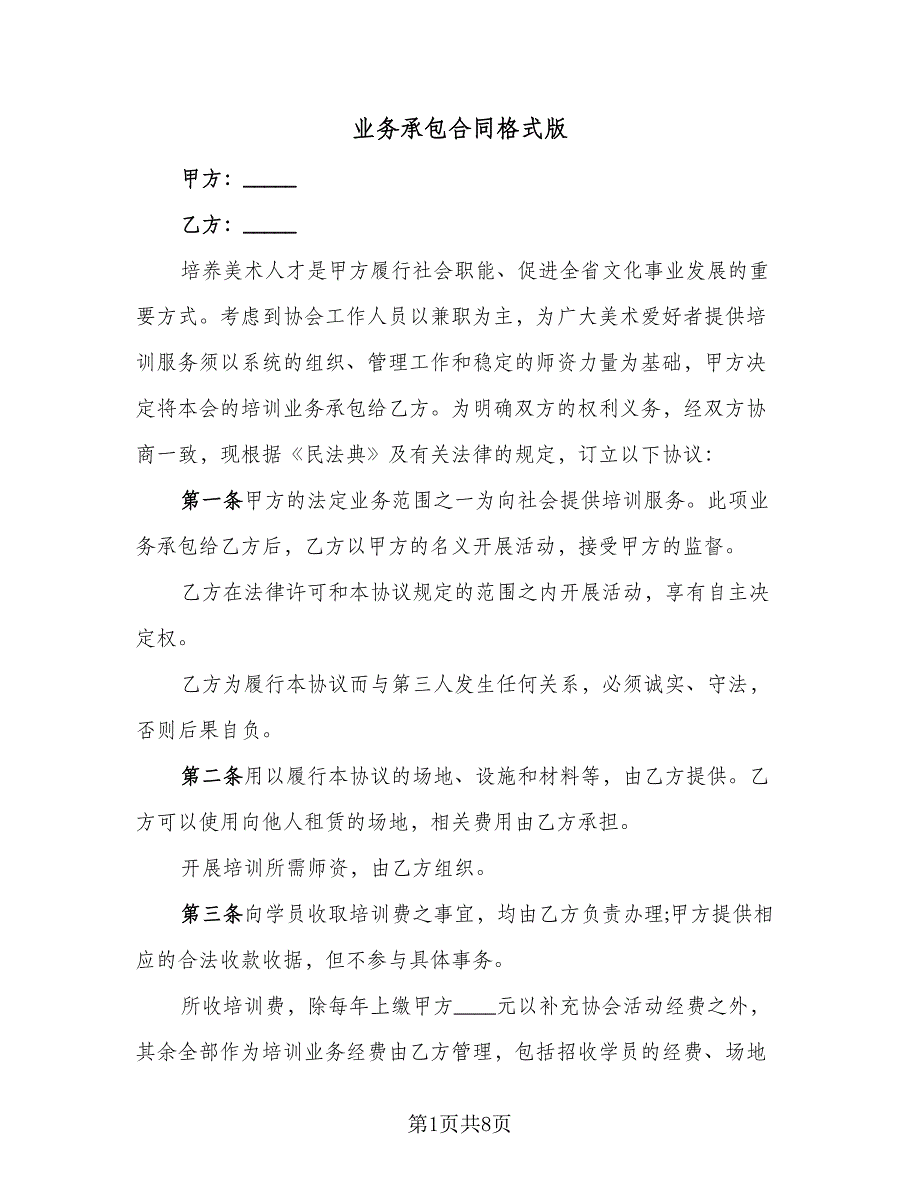 业务承包合同格式版
甲方：_____
乙方：_____
培养美术人才是甲方履行社会职能、促进全省文化事业发展的重
要方式。考虑到协会工作人员以兼职为主，为广大美术爱好者提供培
训服务须以系统的组织、管理工作和稳定的师资力量为基础，甲方决
定将本会的培训业务承包给乙方。为明确双方的权利义务，经双方协
商一致，现根据《民法典》及有关法律的规定，订立以下协议：
第一条甲方的法定业务范围之一为向社会提供培训服务。此项业
务承包给乙方后，乙方以甲方的名义开展活动，接受甲方的监督。
乙方在法律许可和本协议规定的范围之内开展活动，享有自主决
定权。
乙方为履行本协议而与第三人发生任何关系，必须诚实、守法，
否则后果自负。
第二条用以履行本协议的场地、设施和材料等，由乙方提供。乙
方可以使用向他人租赁的场地，相关费用由乙方承担。
开展培训所需师资，由乙方组织。
第三条向学员收取培训费之事宜，均由乙方负责办理;甲方提供相
应的合法收款收据，但不参与具体事务。
所收培训费，除每年上缴甲方____元以补充协会活动经费之外，
其余全部作为培训业务经费由乙方管理，包括招收学员的经费、场地
第1页共8页